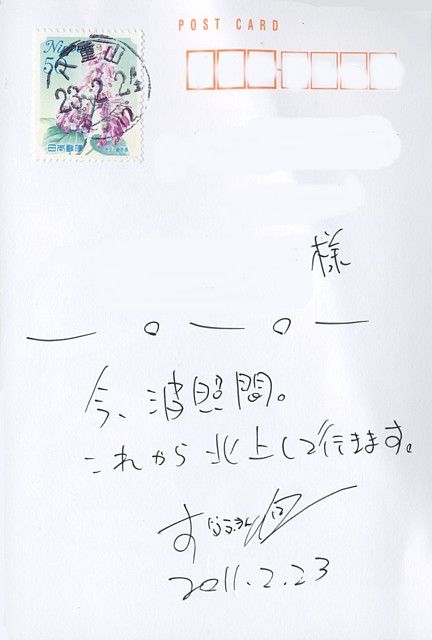 POST CARD
Nippon
50
八重山
23.2.24
日本郵便
様
今、波照間。
これから北上して行きます。
2011.2.23